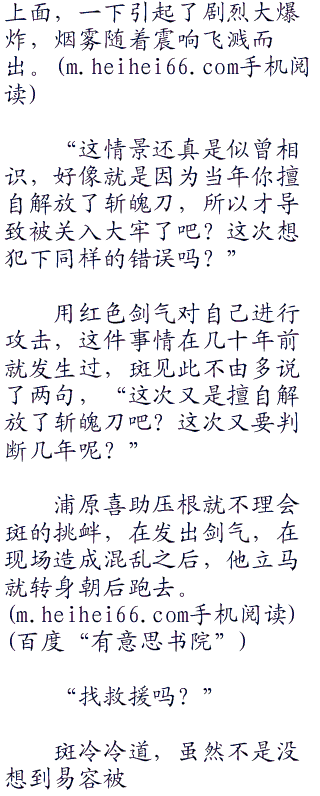 上面，一下引起了剧烈大爆
炸，烟雾随着震响飞溅而
出。(m.heihei66.com手机阅
读)
“这情景还真是似曾相
识，好像就是因为当年你擅
自解放了斩魄刀，所以才导
致被关入大牢了吧？这次想
犯下同样的错误吗？”
用红色剑气对自己进行
攻击，这件事情在几十年前
就发生过，斑见此不由多说
了两句，“这次又是擅自解
放了斩魄刀吧？这次又要判
断几年呢？”
浦原喜助压根就不理会
斑的挑衅，在发出剑气，在
现场造成混乱之后，他立马
就转身朝后跑去。
(m.heihei66.com手机阅读)
(百度“有意思书院”)
“找救援吗？”
斑冷冷道，虽然不是没
想到易容被